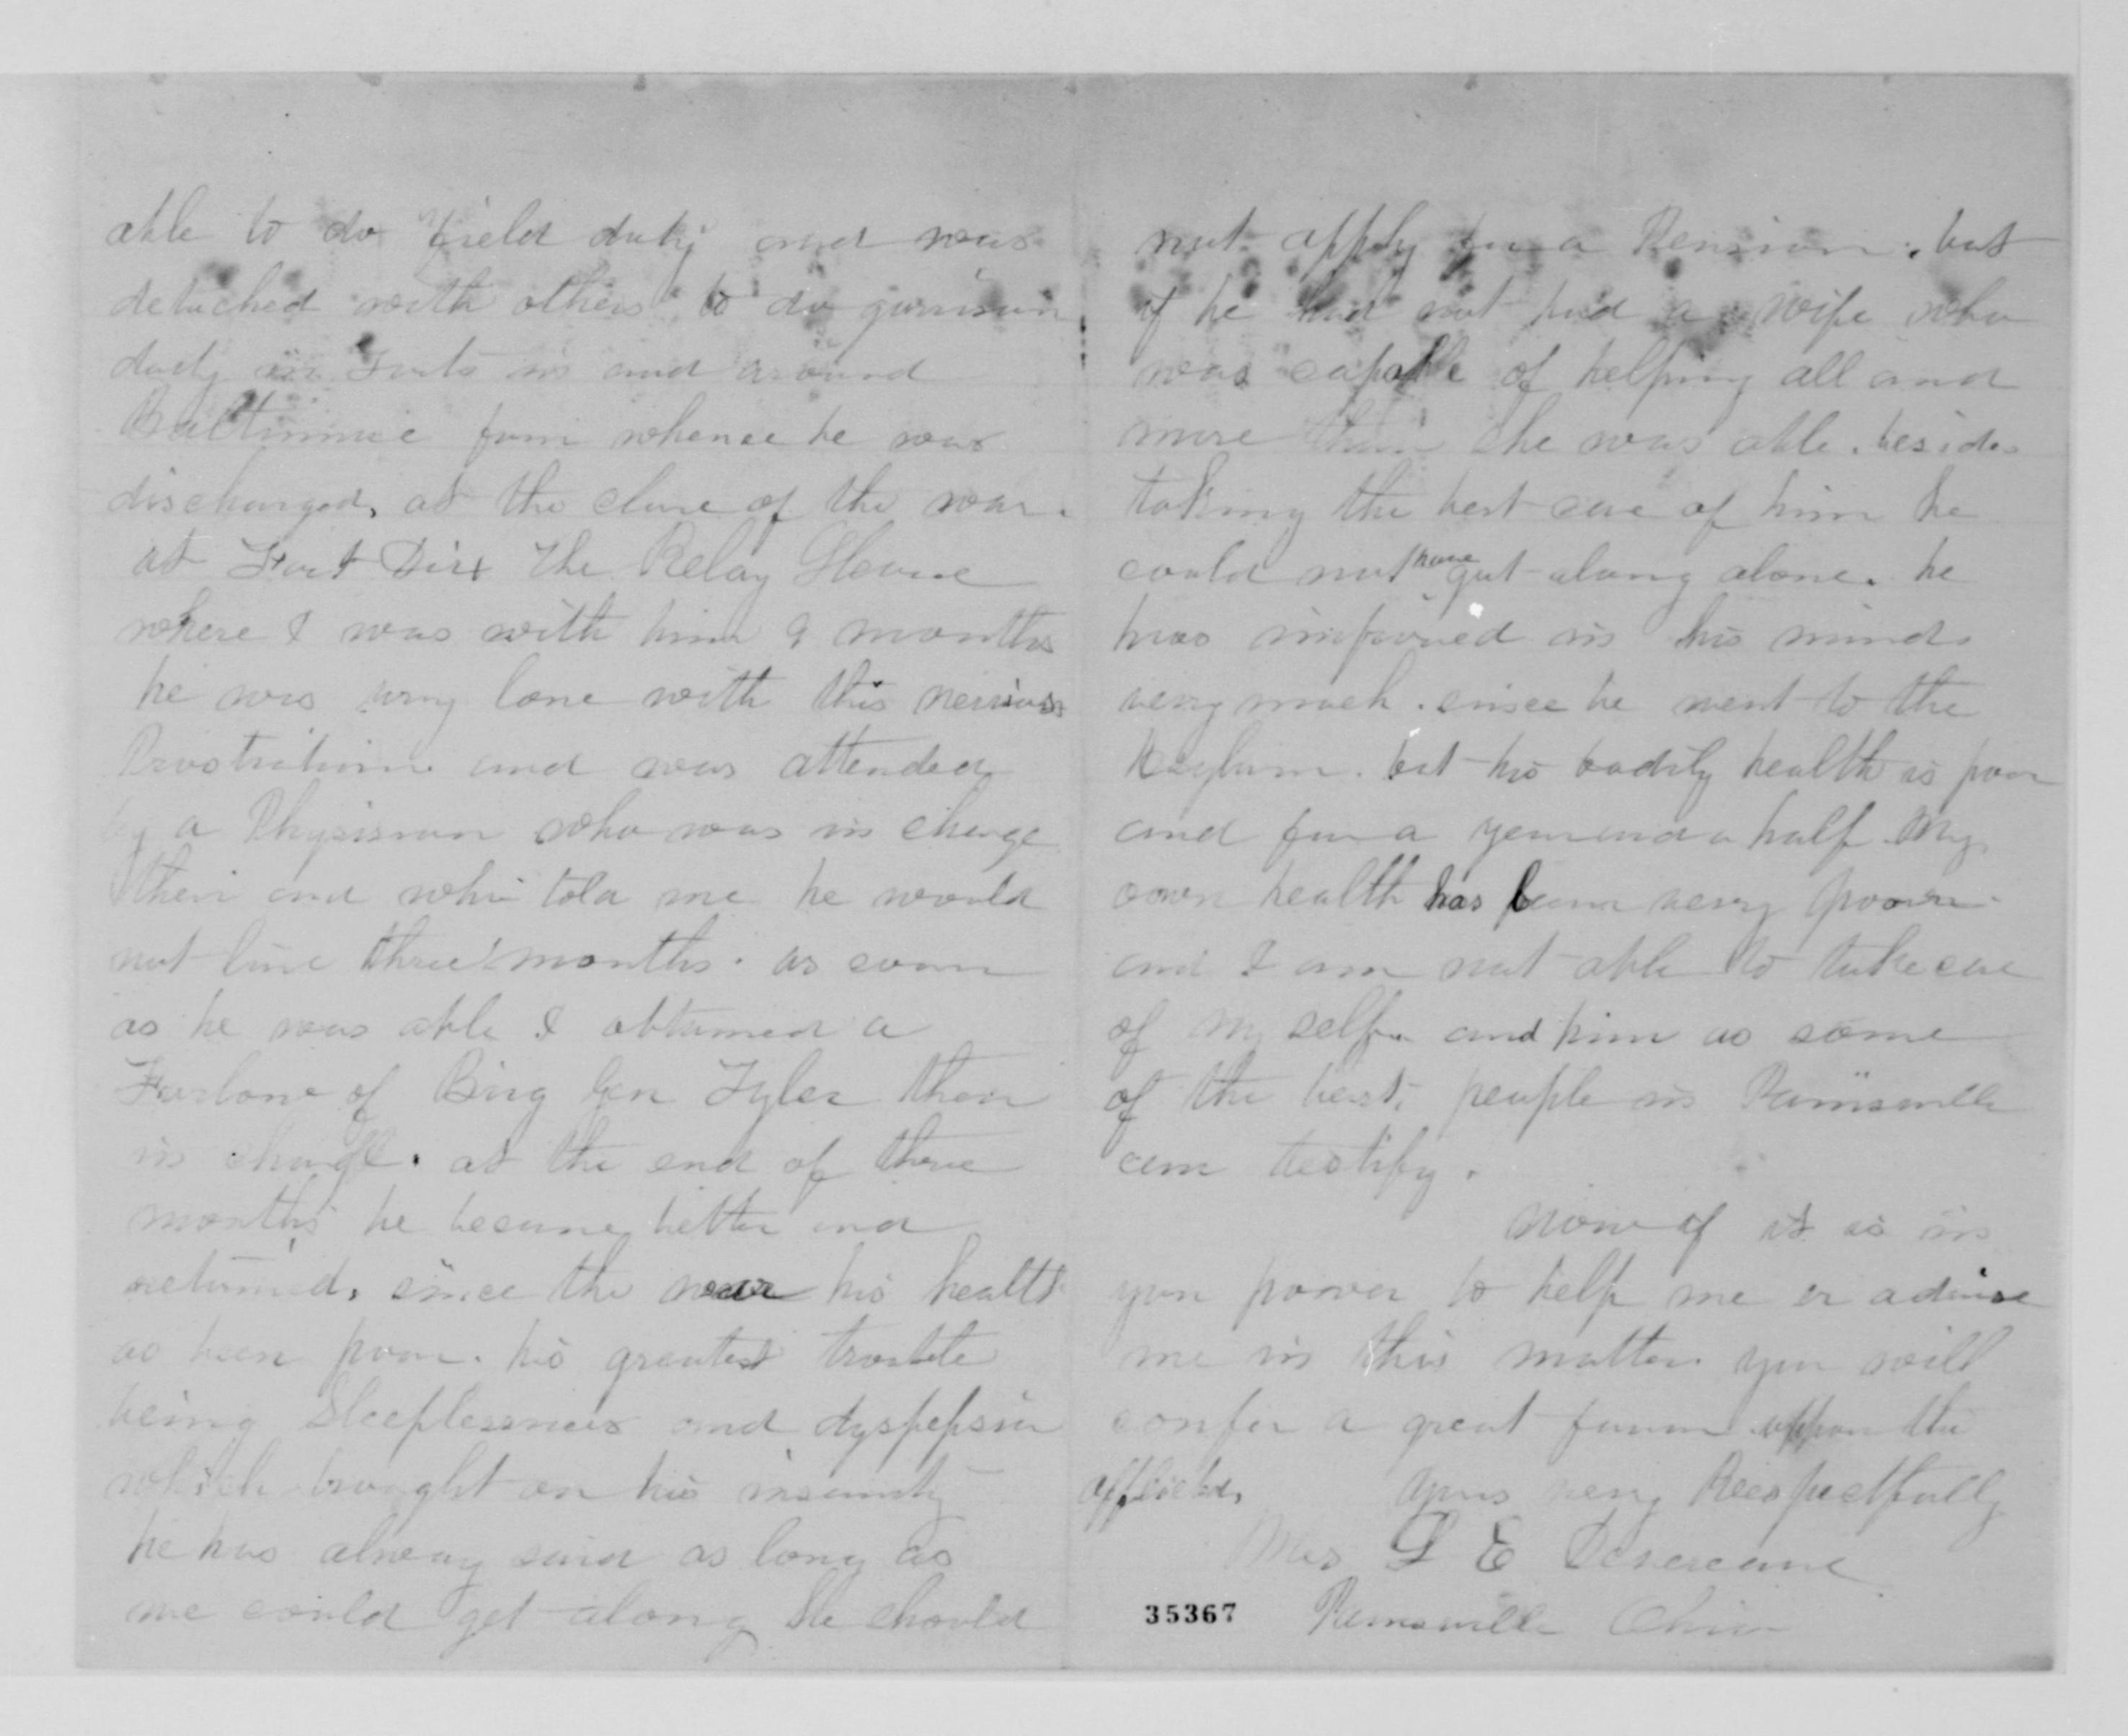 able to do Field duty and was
detached with others to do garrison
duty in Forts in and around
Baltimore from whence he was
discharged, at the close of the war.
at Fort Dix The Relay House
where I was with him 9 months
he was very low with this nervious
Prostration and was attended
by a Physician who was in charge
then and who told me he would
not live three months. as soon
as he was able I obtained a
Furlow of Brig Gen Tyler then
in charge. at the end of three
months he became better and
returned, since the war his health
as been poor. his greatest trouble
being Sleeplessness and dyspepsia
which brought on his insanity
he has alway said as long as
we could get along He should
not apply for a Pension. but
if he had not had a wife who
was capable of helping all and
more than she was able. besides
taking the best care of him he
could not have got along alone. he
has improved in his mind
very much. since he went to the
Asylum. but his bodily health is poor
and for a year and a half My
own health has been very poor
and I am not able to take care
of my self. and him as some
of the best. people in Painsville
can testify.
now if it is in
your power to help me or advise
me in this matter you will
confer a great favor uppon the
afflicted, yours very Respectfully
Mrs L E Devereaux
Painsville Ohio
35367